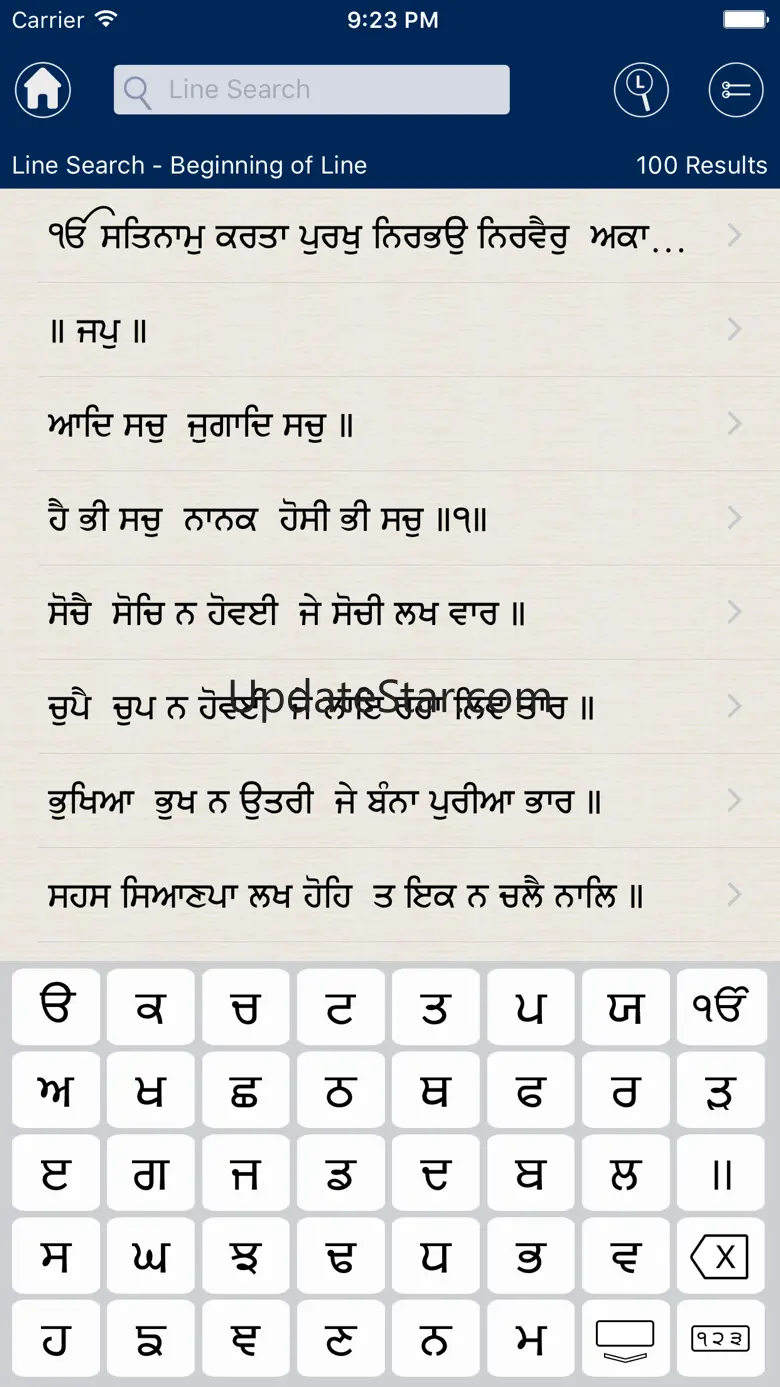 Carrier 9:23 PM
Line Search
Line Search - Beginning of Line 100 Results
ੴ ਸਤਿਨਾਮੁ ਕਰਤਾ ਪੁਰਖੁ ਨਿਰਭਉ ਨਿਰਵੈਰੁ ਅਕਾ...
॥ ਜਪੁ ॥
ਆਦਿ ਸਚੁ ਜੁਗਾਦਿ ਸਚੁ ॥
ਹੈ ਭੀ ਸਚੁ ਨਾਨਕ ਹੋਸੀ ਭੀ ਸਚੁ ॥੧॥
ਸੋਚੈ ਸੋਚਿ ਨ ਹੋਵਈ ਜੇ ਸੋਚੀ ਲਖ ਵਾਰ ॥
UpdateStar.com
ਚੁਪੈ ਚੁਪ ਨ ਹੋਵਈ ਜੇ ਲਾਇ ਰਹਾ ਲਿਵ ਤਾਰ ॥
ਭੁਖਿਆ ਭੁਖ ਨ ਉਤਰੀ ਜੇ ਬੰਨਾ ਪੁਰੀਆ ਭਾਰ ॥
ਸਹਸ ਸਿਆਣਪਾ ਲਖ ਹੋਹਿ ਤ ਇਕ ਨ ਚਲੈ ਨਾਲਿ ॥
ੳ ਕ ਚ ਟ ਤ ਪ ਯ ੴ
ਅ ਖ ਛ ਠ ਥ ਫ ਰ ੜ
ੲ ਗ ਜ ਡ ਦ ਬ ਲ ॥
ਸ ਘ ਝ ਢ ਧ ਭ ਵ X
ਹ ਙ ਞ ਣ ਨ ਮ ੧੨੩